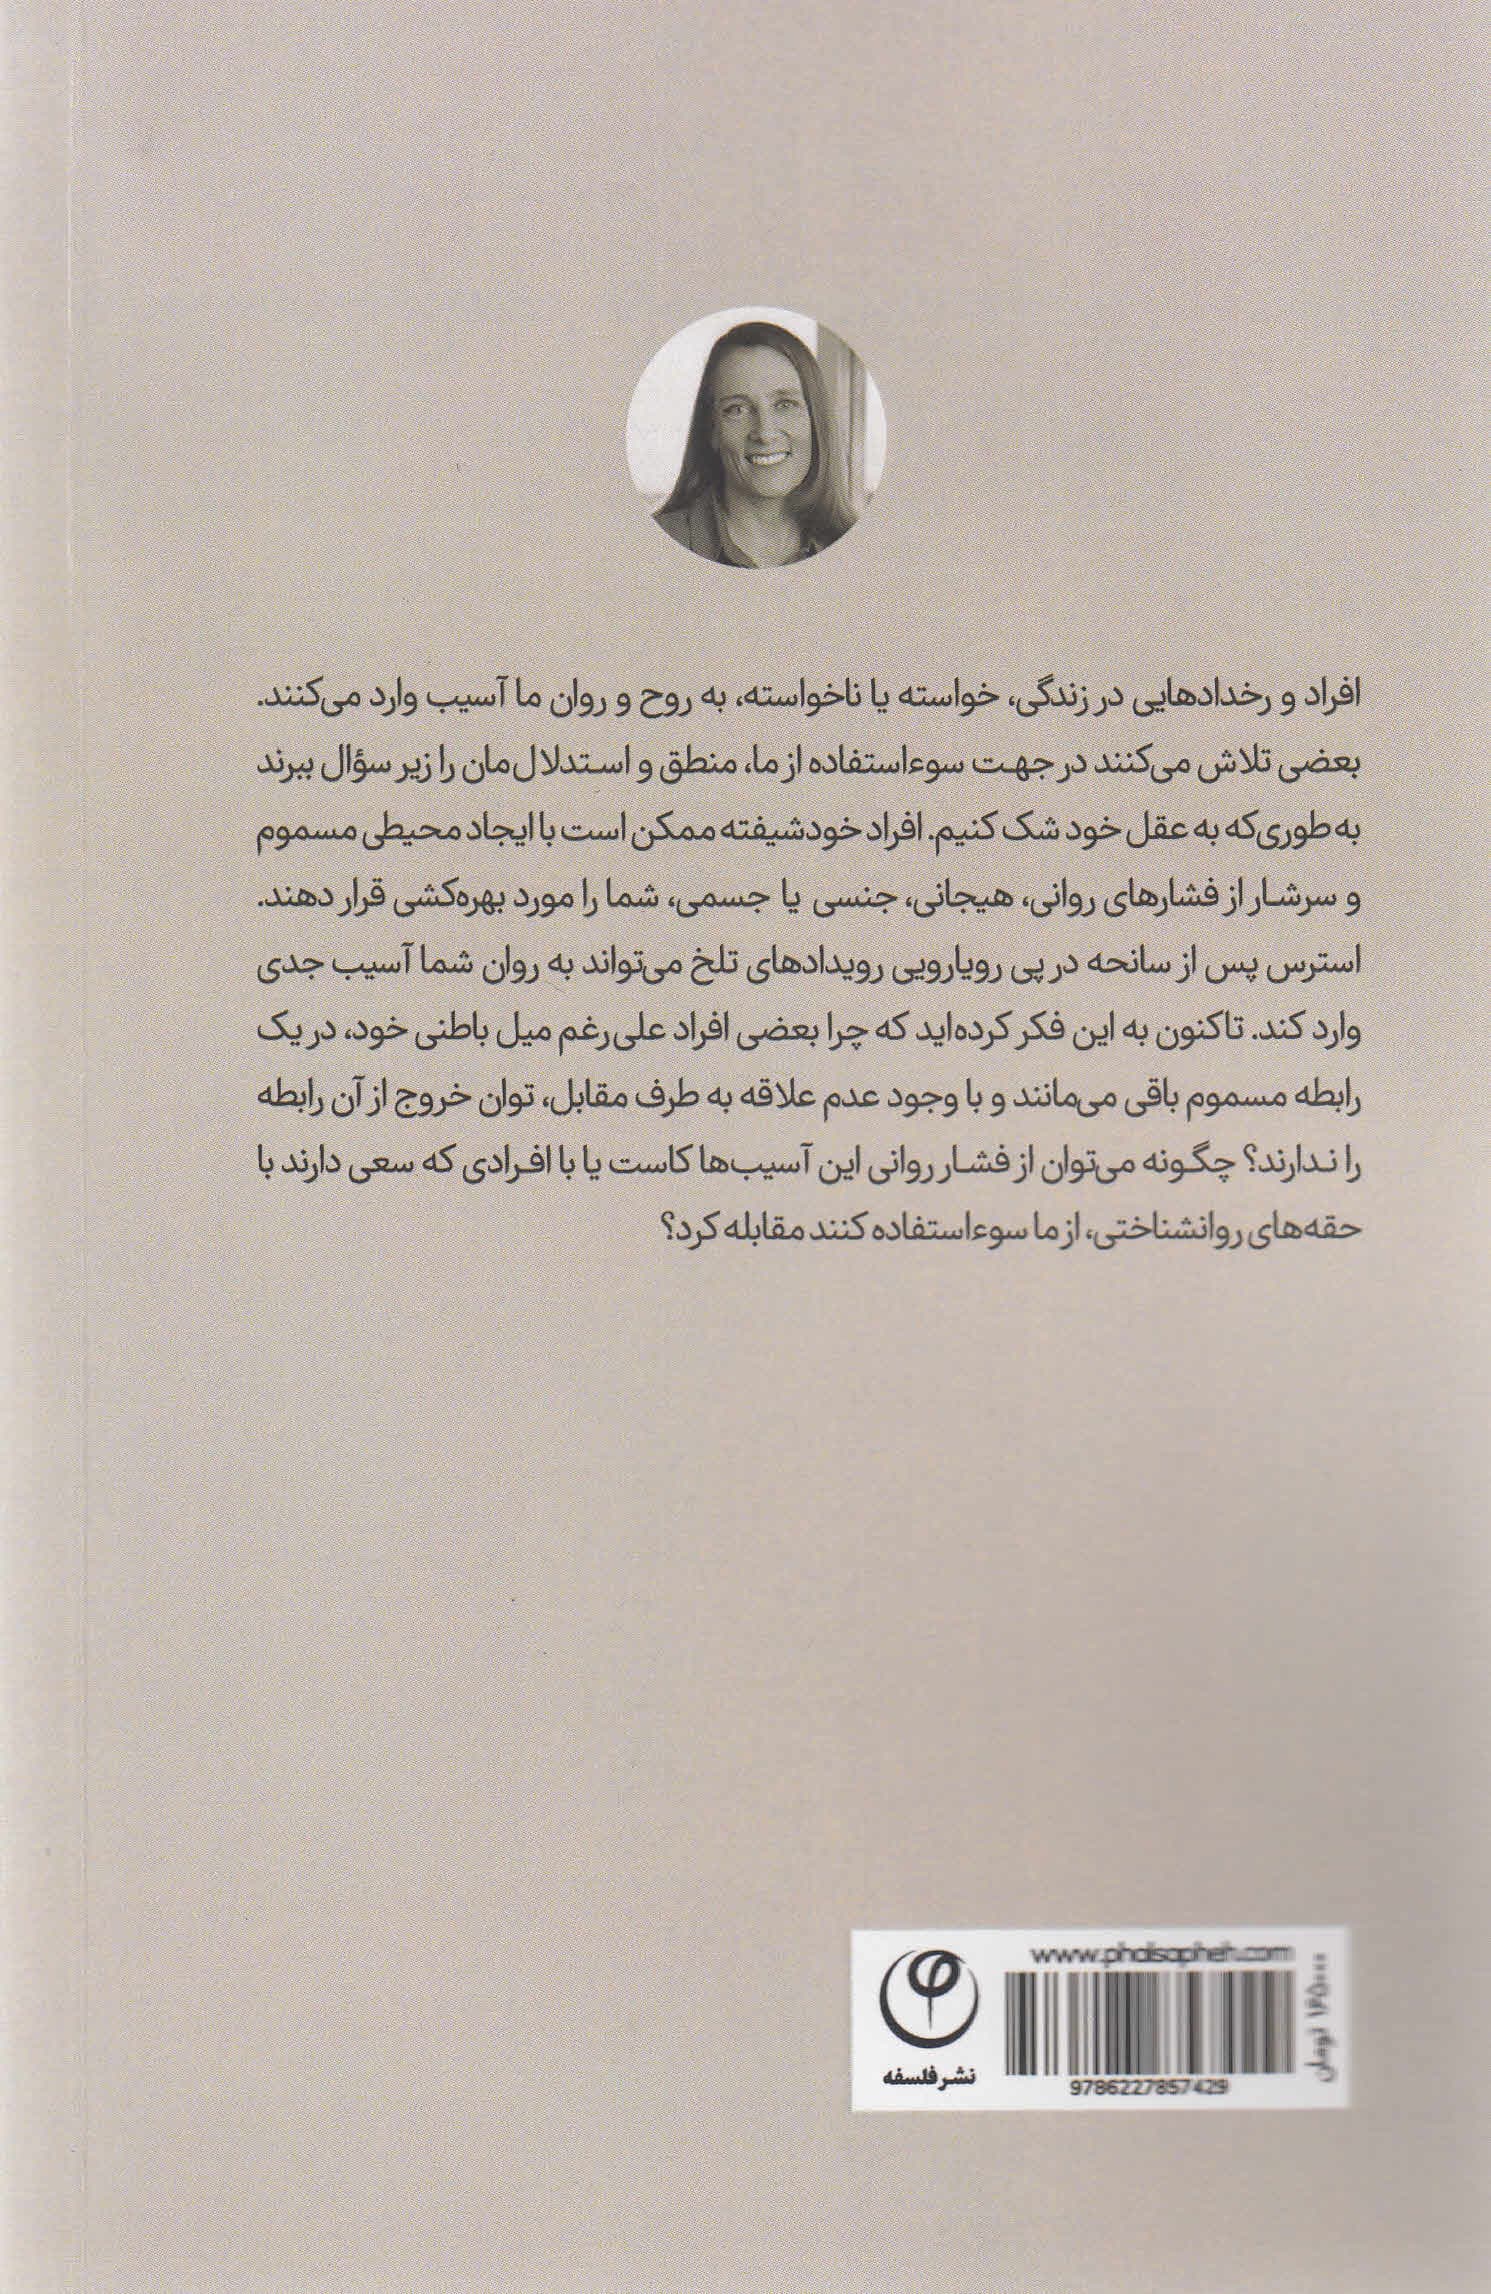 افراد و رخدادهایی در زندگی، خواسته یا ناخواسته، به روح و روان ما آسیب وارد می‌کنند.
بعضی تلاش می‌کنند در جهت سوءاستفاده از ما، منطق و استدلال‌مان را زیر سؤال ببرند
به‌طوری‌که به عقل خود شک کنیم. افراد خودشیفته ممکن است با ایجاد محیطی مسموم
و سرشار از فشارهای روانی، هیجانی، جنسی یا جسمی، شما را مورد بهره‌کشی قرار دهند.
استرس پس از سانحه در پی رویارویی رویدادهای تلخ می‌تواند به روان شما آسیب جدی
وارد کند. تاکنون به این فکر کرده‌اید که چرا بعضی افراد علی‌رغم میل باطنی خود، در یک
رابطه مسموم باقی می‌مانند و با وجود عدم علاقه به طرف مقابل، توان خروج از آن رابطه
را ندارند؟ چگونه می‌توان از فشار روانی این آسیب‌ها کاست یا با افرادی که سعی دارند با
حقه‌های روانشناختی، از ما سوءاستفاده کنند مقابله کرد؟
www.phalsapheh.com
9786227857429
نشر فلسفه
تومان